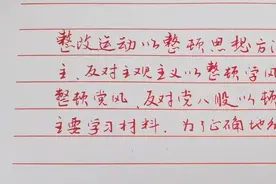 整改运动以整顿思想方法
主、反对主观主义以整顿学风
整顿党风、反对党八股以
主要学习材料. 为了正确地